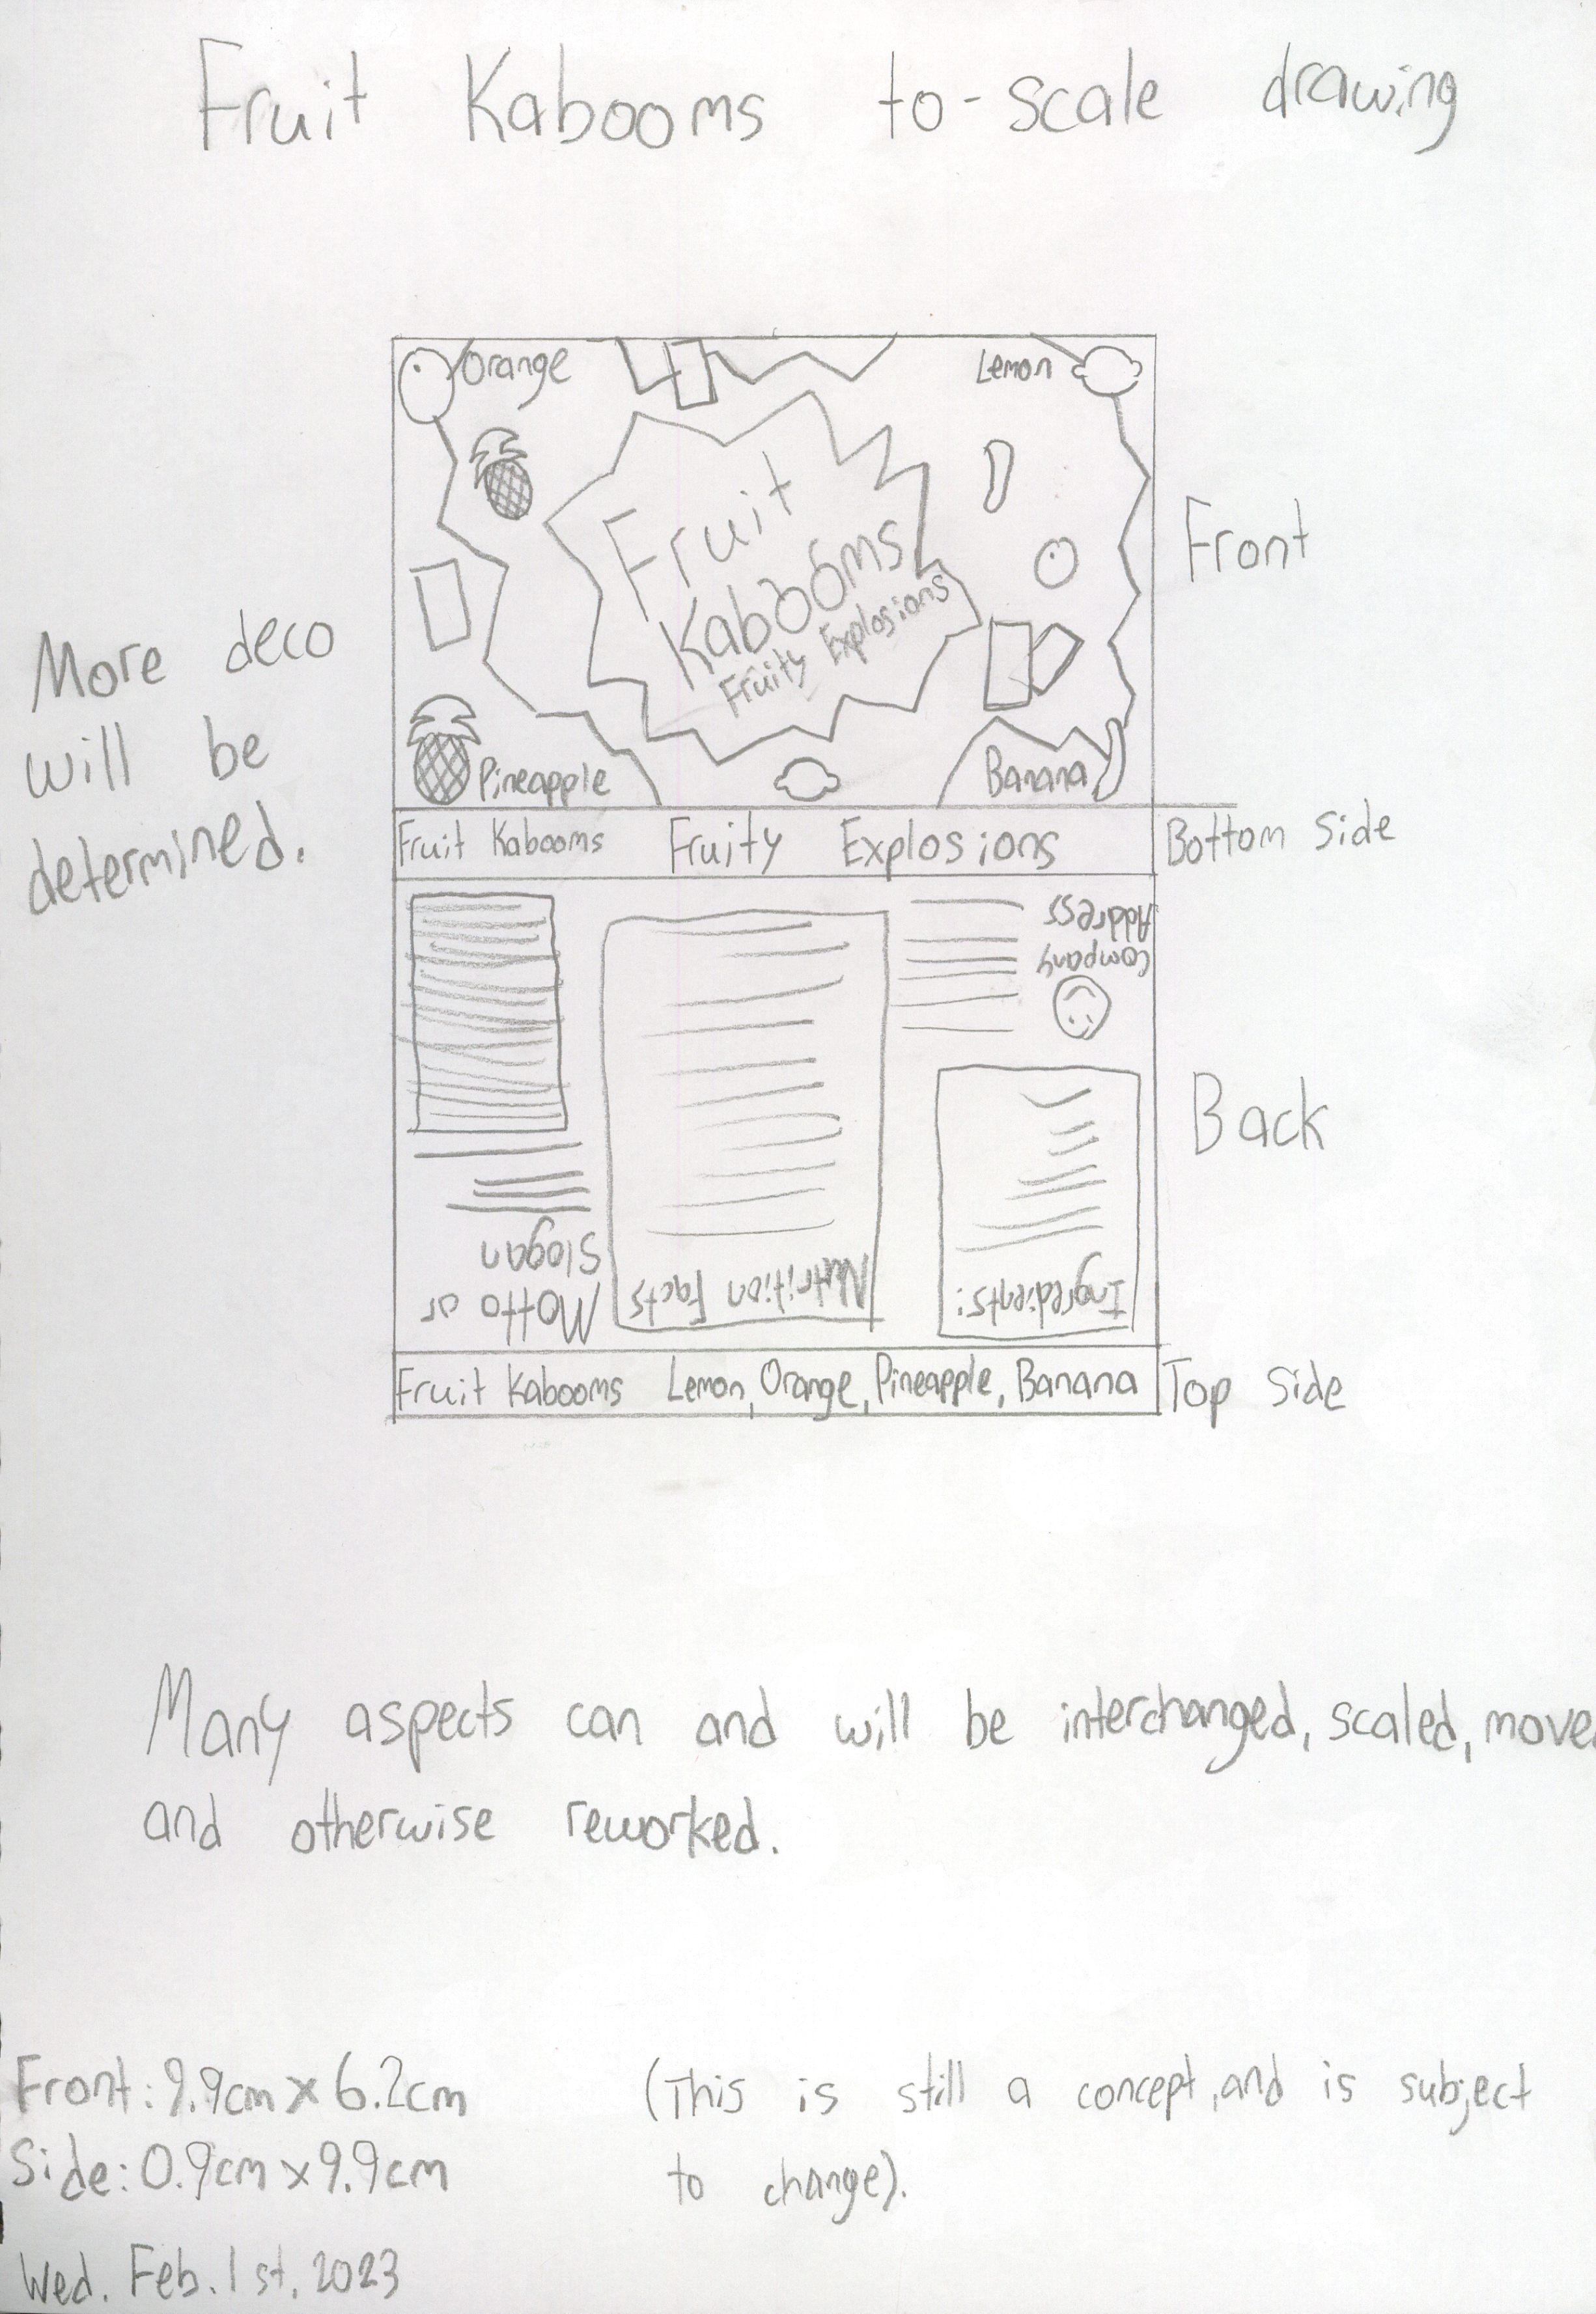 Fruit Kabooms to-scale drawing
Orange
Lemon
Fruit
Kabooms
Fruity Explosions
Front
More deco
will be
determined.
Pineapple
Banana
Fruit Kabooms Fruity Explosions
Bottom Side
Address
Company
Back
Slogan
Motto or
Nutrition Facts
Ingredients:
Fruit Kabooms Lemon, Orange, Pineapple, Banana
Top Side
Many aspects can and will be interchanged, scaled, move
and otherwise reworked.
Front: 9.9cm x 6.2cm
Side: 0.9cm x 9.9cm
(This is still a concept, and is subject
to change).
Wed. Feb. 1st, 2023